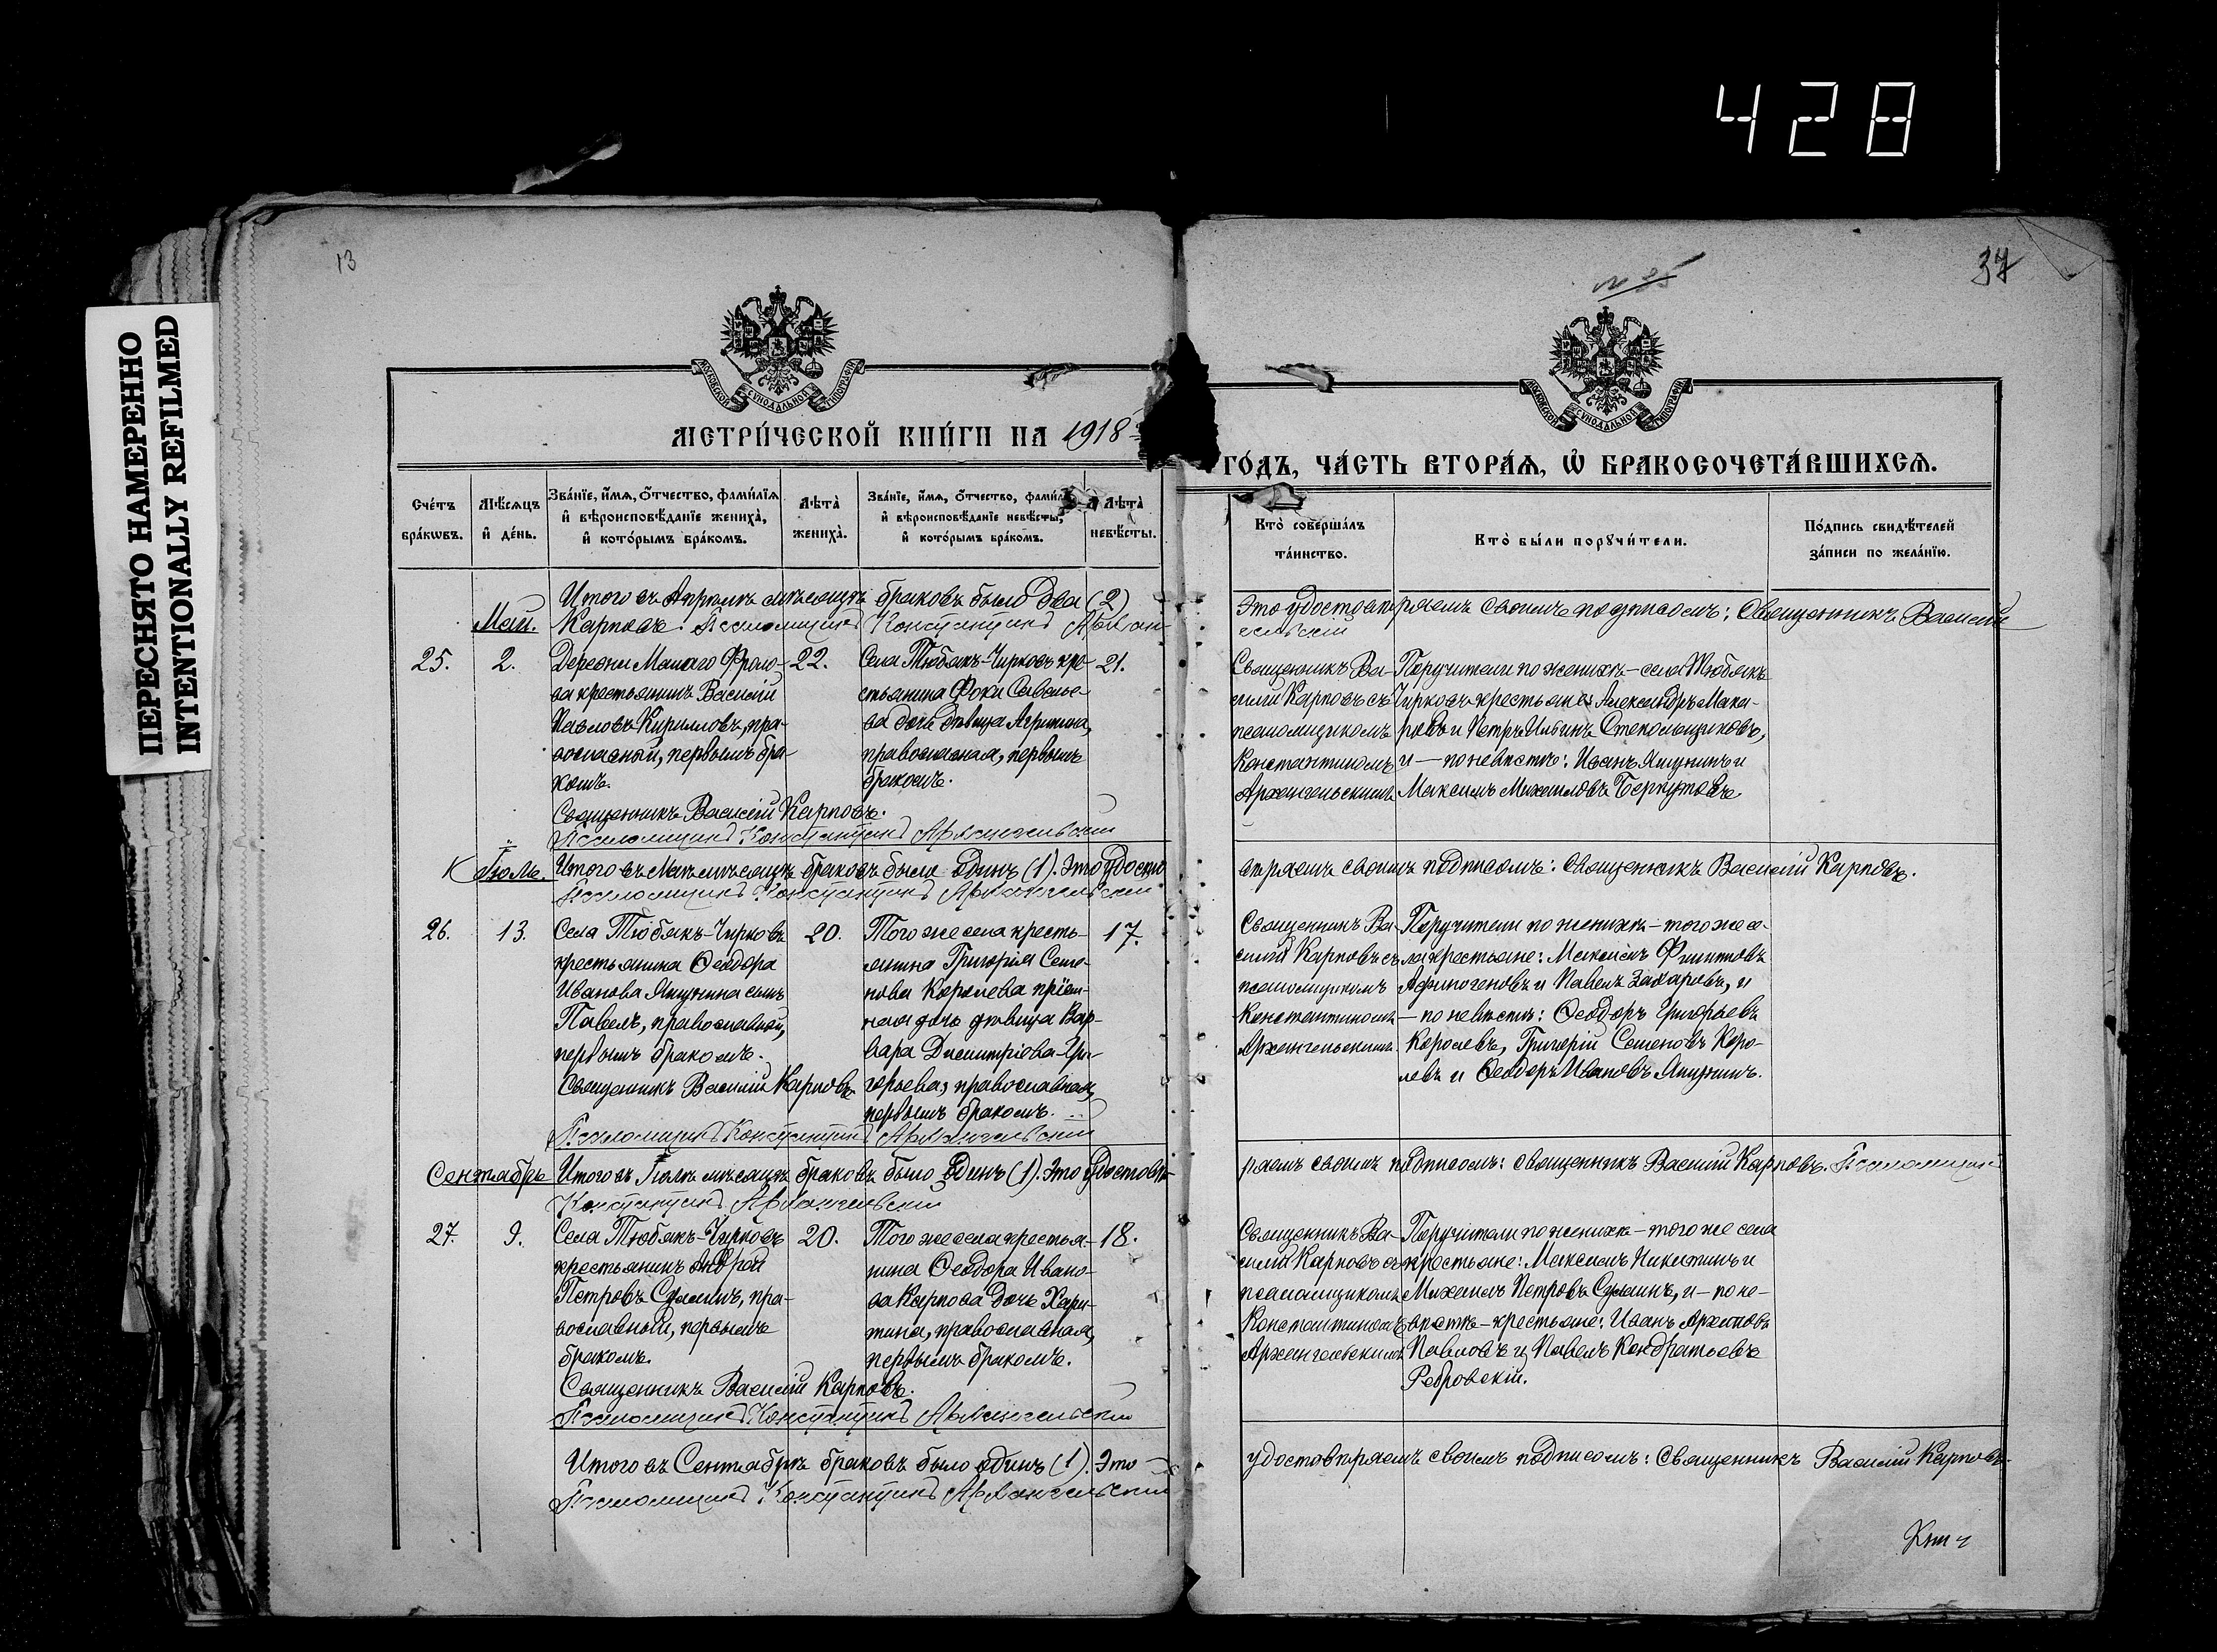 428
ПЕРЕСНЯТО НАМЕРЕННО
INTENTIONALLY REFILMED
13
37
МОСКОВСКОЙ СУНОДАЛЬНОЙ ТИПОГРАФІИ
МОСКОВСКОЙ СУНОДАЛЬНОЙ ТИПОГРАФІИ
МЕТРИ́ЧЕСКОЙ КНИ́ГИ НА 1918
ГО́ДЪ, ЧА́СТЬ ВТОРА́Я, Ѡ҆ БРАКОСОЧЕТА́ВШИХСЯ.
Сче́тъ
бра́кѡвъ.
Мѣ́сяцъ
и҆ де́нь.
Зва́нїе, и҆́мя, ѻ҆́тчество, фами́лїя
и҆ вѣроисповѣ́данїе жениха̀,
и҆ кото́рымъ бра́комъ.
Лѣта̀
жениха̀.
Зва́нїе, и҆́мя, ѻ҆́тчество, фами́лїя
и҆ вѣроисповѣ́данїе невѣ́сты,
и҆ кото́рымъ бра́комъ.
Лѣта̀
невѣ́сты.
Кто̀ соверша́лъ
та́инство.
Кто̀ бы́ли порꙋчи́тели.
По́дпись свидѣ́телей
за́писи по жела́нїю.
Итого въ Апрѣлѣ мѣсяцѣ браковъ было два (2)
Это удостовѣряемъ своимъ подписомъ: Священникъ Василій
Май.
Карповъ. Псаломщикъ Константинъ Архан-
гельскій
25.
2.
Деревни Малаго Фроло-
ва крестьянинъ Василій
Павловъ Кирилловъ, пра-
вославный, первымъ бра-
комъ.
22.
Села Тюбякъ-Чирковъ кре-
стьянина Фоки Савелье-
ва дочь девица Агрипина,
православная, первымъ
бракомъ.
21.
Священникъ Ва-
силій Карповъ съ
псаломщикомъ
Константиномъ
Архангельскимъ
Поручители по женихѣ - села Тюбякъ
Чирковъ крестьяне Александръ Мака-
ровъ и Петръ Ильинъ Стекольщиковъ,
и - по невѣстѣ: Иванъ Яшунинъ и
Максимъ Михаиловъ Беркутовъ.
Священникъ Василій Карповъ.
Псаломщикъ Константинъ Архангельскій
Іюль.
Итого въ Маѣ мѣсяцѣ браковъ было одинъ (1). Это удосто
вѣряемъ своимъ подписомъ: Священникъ Василій Карповъ.
Псаломщикъ Константинъ Архангельскій
26.
13.
Села Тюбякъ-Чирковъ
крестьянина Ѳеодора
Иванова Яшунина сынъ
Павелъ, православный,
первымъ бракомъ.
20.
Того же села кресть-
янина Григорія Семе-
нова Королева пріем-
ная дочь девица Вар-
вара Димитріева Гри-
горьева, православная,
первымъ бракомъ.
17.
Священникъ Ва-
силій Карповъ съ
псаломщикомъ
Константиномъ
Архангельскимъ
Поручители по женихѣ - того же се-
ла крестьяне: Максимъ Филипповъ
Афиногеновъ и Павелъ Захаровъ, и
- по невѣстѣ: Ѳеодоръ Григорьевъ
Королевъ, Григорій Семеновъ Коро-
левъ и Ѳеодоръ Ивановъ Яшунинъ.
Священникъ Василій Карповъ
Псаломщикъ Константинъ Архангельскій
Сентябрь
Итого въ Іюлѣ мѣсяцѣ браковъ было одинъ (1). Это удостовѣ-
ряемъ своимъ подписомъ: Священникъ Василій Карповъ. Псаломщикъ
Константинъ Архангельскій
27.
9.
Села Тюбякъ-Чирковъ
крестьянинъ Андрей
Петровъ Суминъ, пра-
вославный, первымъ
бракомъ.
20.
Того же села крестья-
нина Ѳеодора Ивано-
ва Карпова дочь Хари-
тина, православная,
первымъ бракомъ.
18.
Священникъ Ва-
силій Карповъ съ
псаломщикомъ
Константиномъ
Архангельскимъ
Поручители по женихѣ - того же села
крестьяне: Максимъ Никитинъ и
Михаилъ Петровъ Суминъ, и - по не-
вѣстѣ - крестьяне: Иванъ Архиповъ
Павловъ и Павелъ Кондратьевъ
Ребровскій.
Священникъ Василій Карповъ.
Псаломщикъ Константинъ Архангельскій
Итого въ Сентябрѣ браковъ было одинъ (1). Это
удостовѣряемъ своимъ подписомъ: Священникъ Василій Карповъ.
Псаломщикъ Константинъ Архангельскій